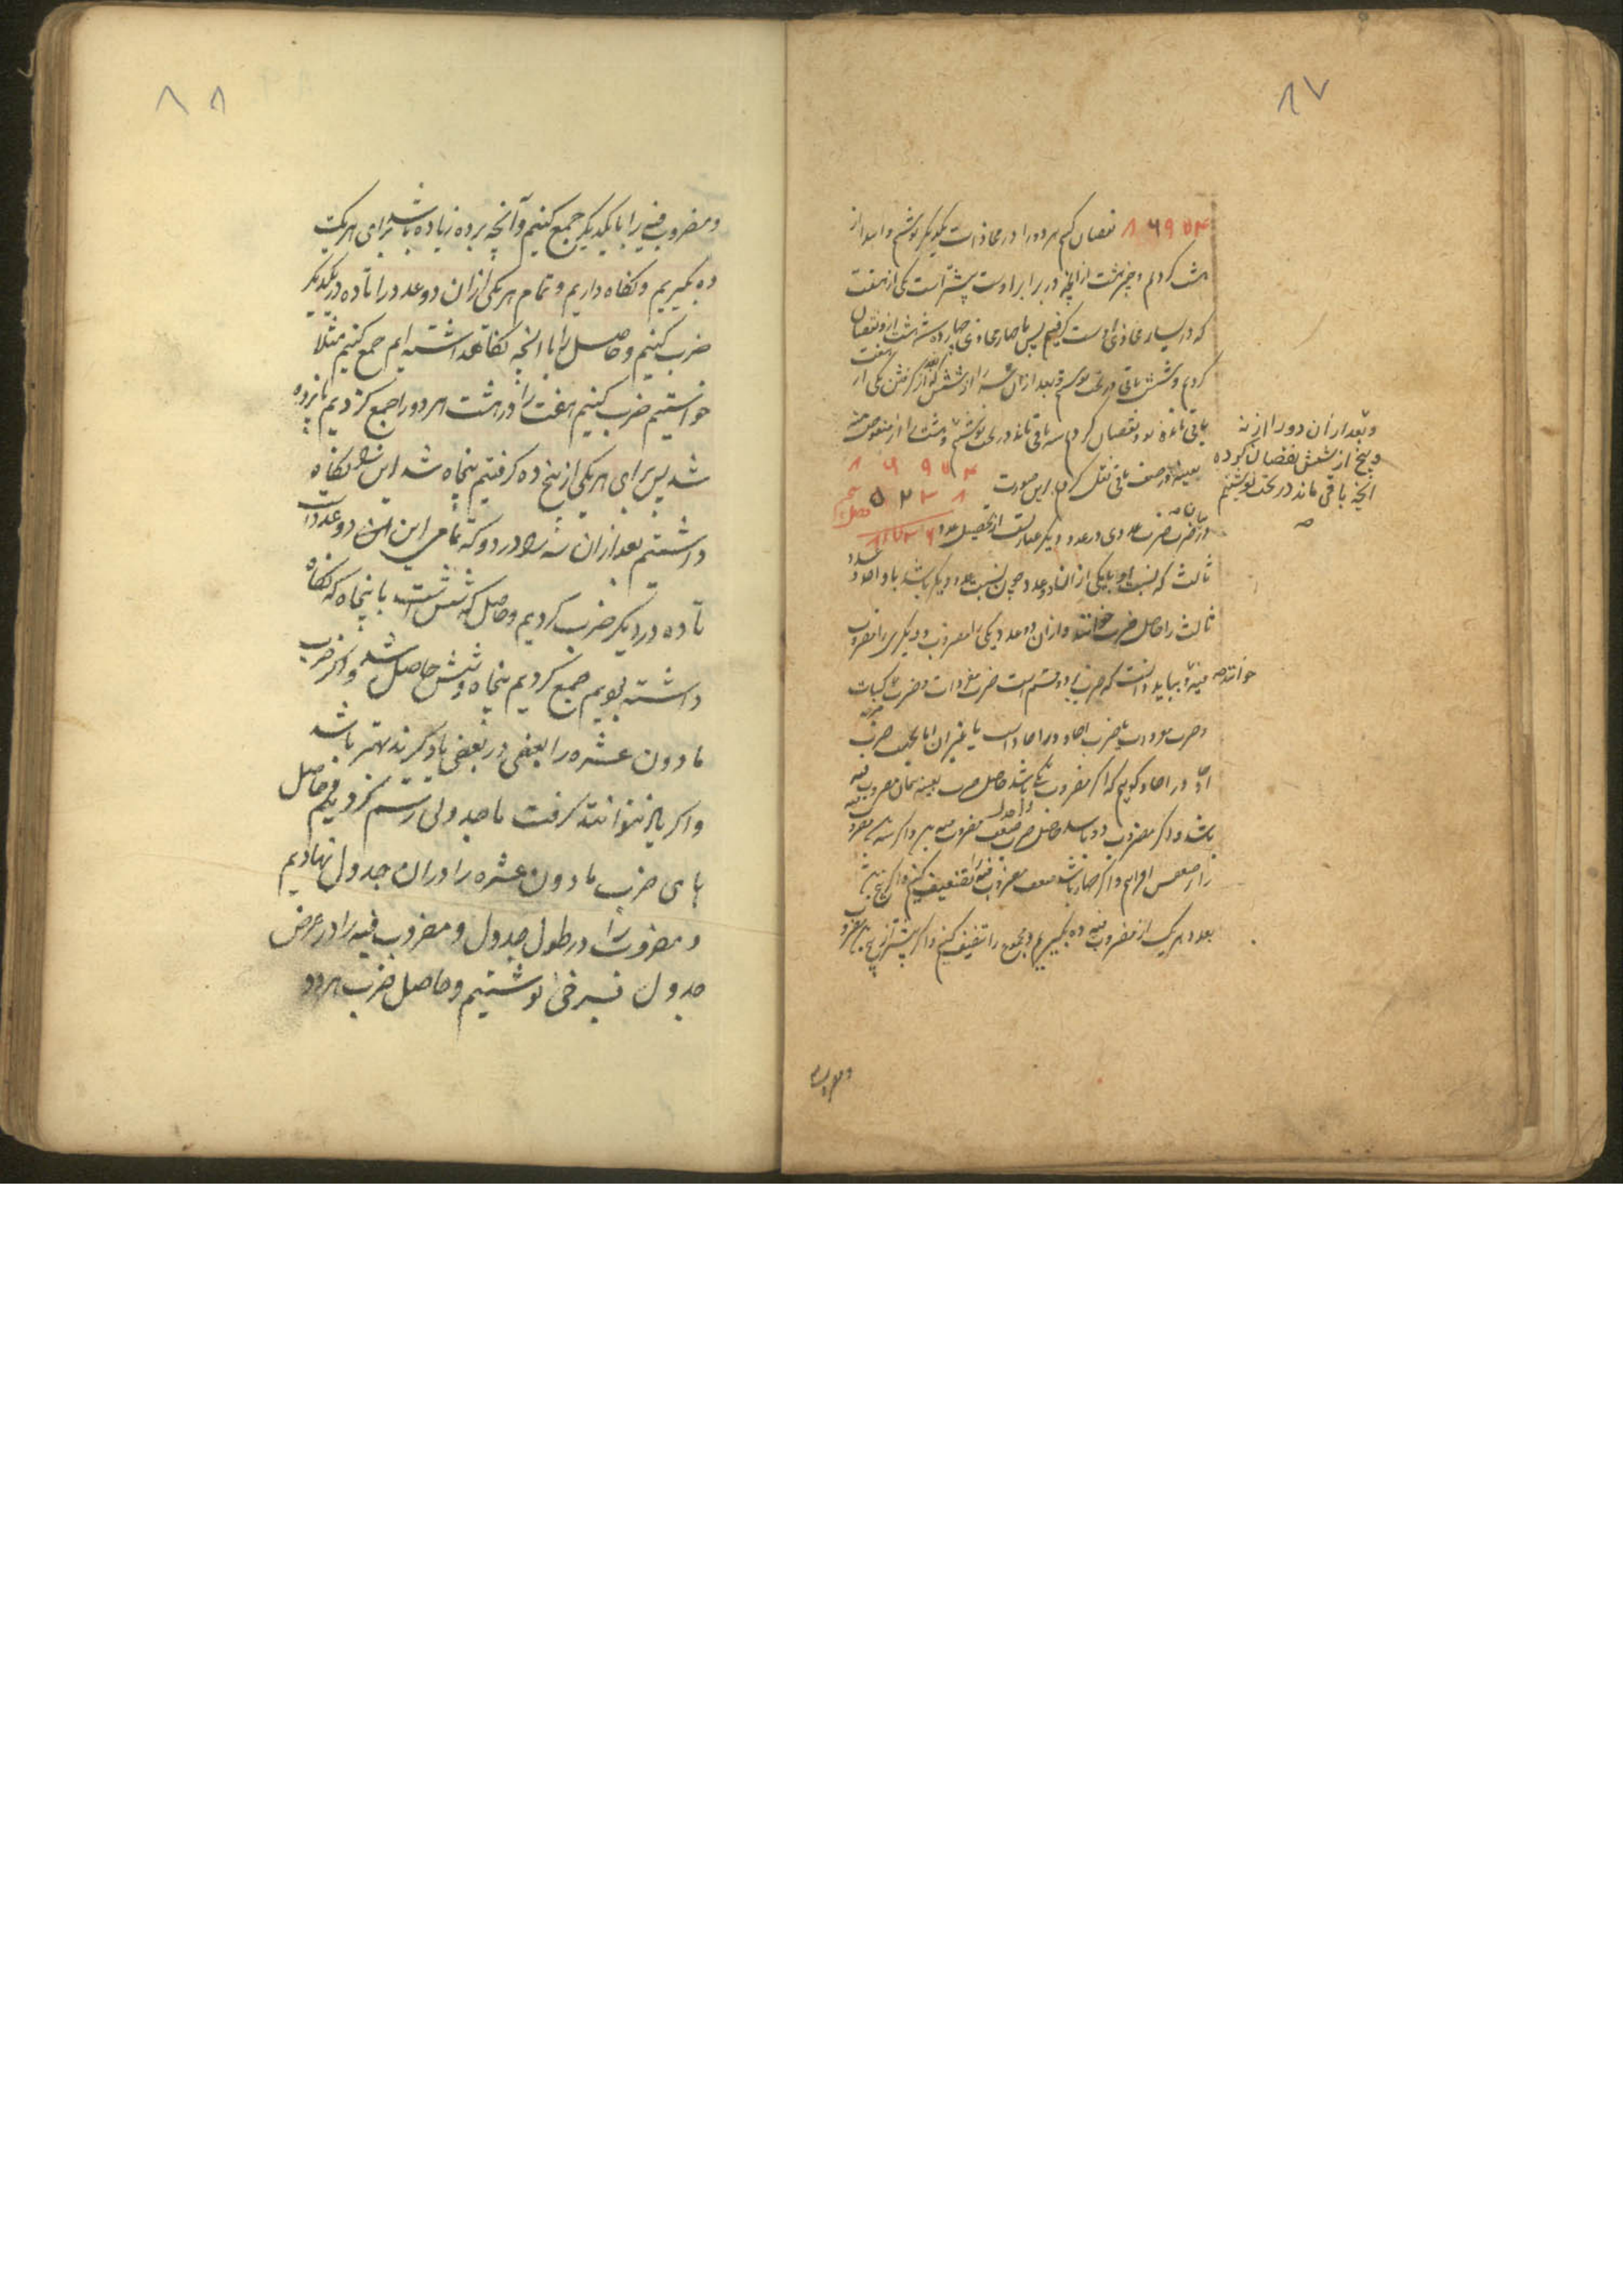 ۸۷
۸۶۹۷۴ نقصان کنیم هر دو را در محاذات یکدیگر نوشتیم و ابتدا از
هشت کردیم و چون هشت از آنچه در برابر اوست بیشتر است یکی از هفت
که در یسار محاذی اوست گرفتیم پس با چهار محاذی چهارده شد هشت از و نقصان
کردیم و شش باقی در تحت نوشتیم و بعد از آن سه را از شش که بعد از گرفتن یکی از هفت
باقی مانده بود نقصان کردیم سه باقی ماند در تحت نوشتیم و هشت را از منقوص منه
بعینه در صف باقی نقل کردیم بر این صورت
۸ ۶ ۹ ۷ ۴
۵ ۲ ۳ ۸
و بعد از آن دو را از نه
و پنج از شش نقصان کرده
آنچه باقی ماند در تحت نوشتیم
صح
در ضرب ضرب عددی در عدد دیگر عبارتست از تحصیل عدد
ثالث که نسبت او با یکی از آن دو عدد چون نسبت عدد دیگر باشد با واحد و عدد
ثالث را حاصل ضرب خوانند و از آن دو عدد یکی را مضروب و دیگری را مضروب
فیه خوانند و بباید دانست که ضرب بر دو قسم است ضرب مفردات و ضرب مرکبات
و ضرب مفردات یا ضرب احاد در احاد است یا غیر آن اما بجهت ضرب
احاد در احاد گوییم که اگر مضروب یکی باشد حاصل ضرب بعینه همان مضروب فیه
باشد و اگر مضروب دو باشد حاصل ضرب ضعف مضروب فیه بود و اگر سه
را بر ضعفش افزاییم و اگر چهار باشد ضعف مضروب فیه را تضعیف کنیم و اگر پنج باشد
بعدد هر یک از مضروب فیه ده بگیریم و مجموع را تنصیف کنیم و اگر بیشتر از پنج باشد مضروب
و مضروب
۸۸
و مضروب فیه را با یکدیگر جمع کنیم و آنچه بر ده زیاده باشد برای هر یک
ده بگیریم و نگاه داریم و تمام هر یکی از ان دو عدد را تا ده در یکدیگر
ضرب کنیم و حاصل را با انچه نگاه داشته ایم جمع کنیم مثلا
خواستیم ضرب کنیم هفت را در هشت هر دو را جمع کردیم پانزده
شد پس برای هر یکی از پنج ده گرفتیم پنجاه شد این را نگاه
داشتیم بعد از ان سه را در دو که تمامی این دو عدد است
تا ده در دیگر ضرب کردیم و حاصل که شش است با پنجاه که نگاه
داشته بودیم جمع کردیم پنجاه و شش حاصل شد و اگر ضرب
مادون عشره را بعضی در بعضی یاد گیرند بهتر باشد
و اگر یاد نتوانند گرفت ما جدولی رسم کردیم و حاصل
های ضرب مادون عشره را در ان جدول نهادیم
و مضروب را در طول جدول و مضروب فیه را در عرض
جدول بسرخی نوشتیم و حاصل ضرب هر دو